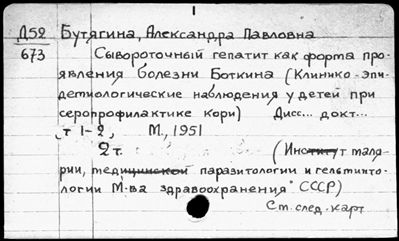 Д52 Бутягина, Александра Павловна
673 Сывороточный гепатит как форма про-
явления болезни Боткина (Клинико-эпи-
демиологические наблюдения у детей при
серопрофилактике кори) Дисс... докт...
, т 1-2, М., 1951
2 т. (Институт маля-
рии, медицинской паразитологии и гельминто-
логии М-ва здравоохранения СССР)
Ст. след. карт